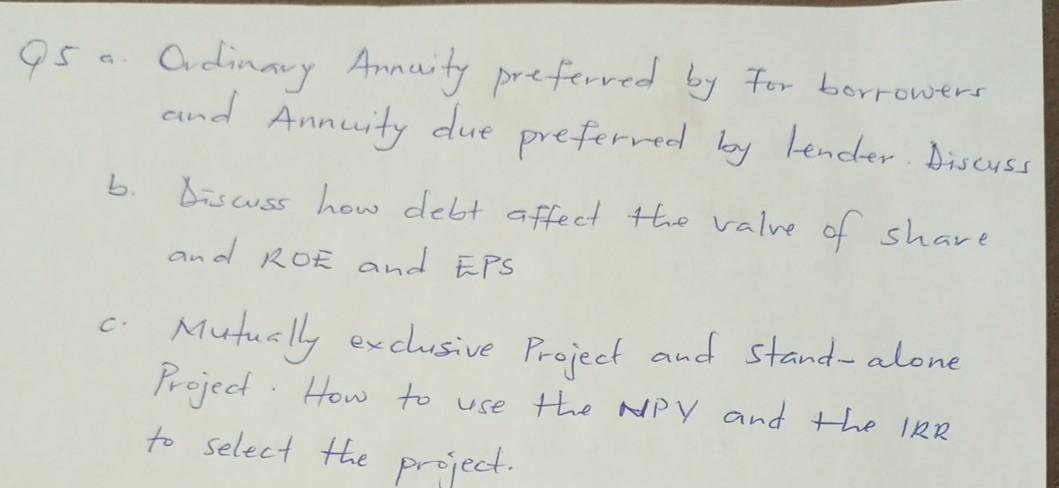 Q5 a. Ordinary Annuity preferred by For borrowers
and Annuity due preferred by lender. Discuss
b. Discuss how debt affect the value of share
and ROE and EPS
c. Mutually exclusive Project and stand-alone
Project. How to use the NPV and the IRR
to select the project.